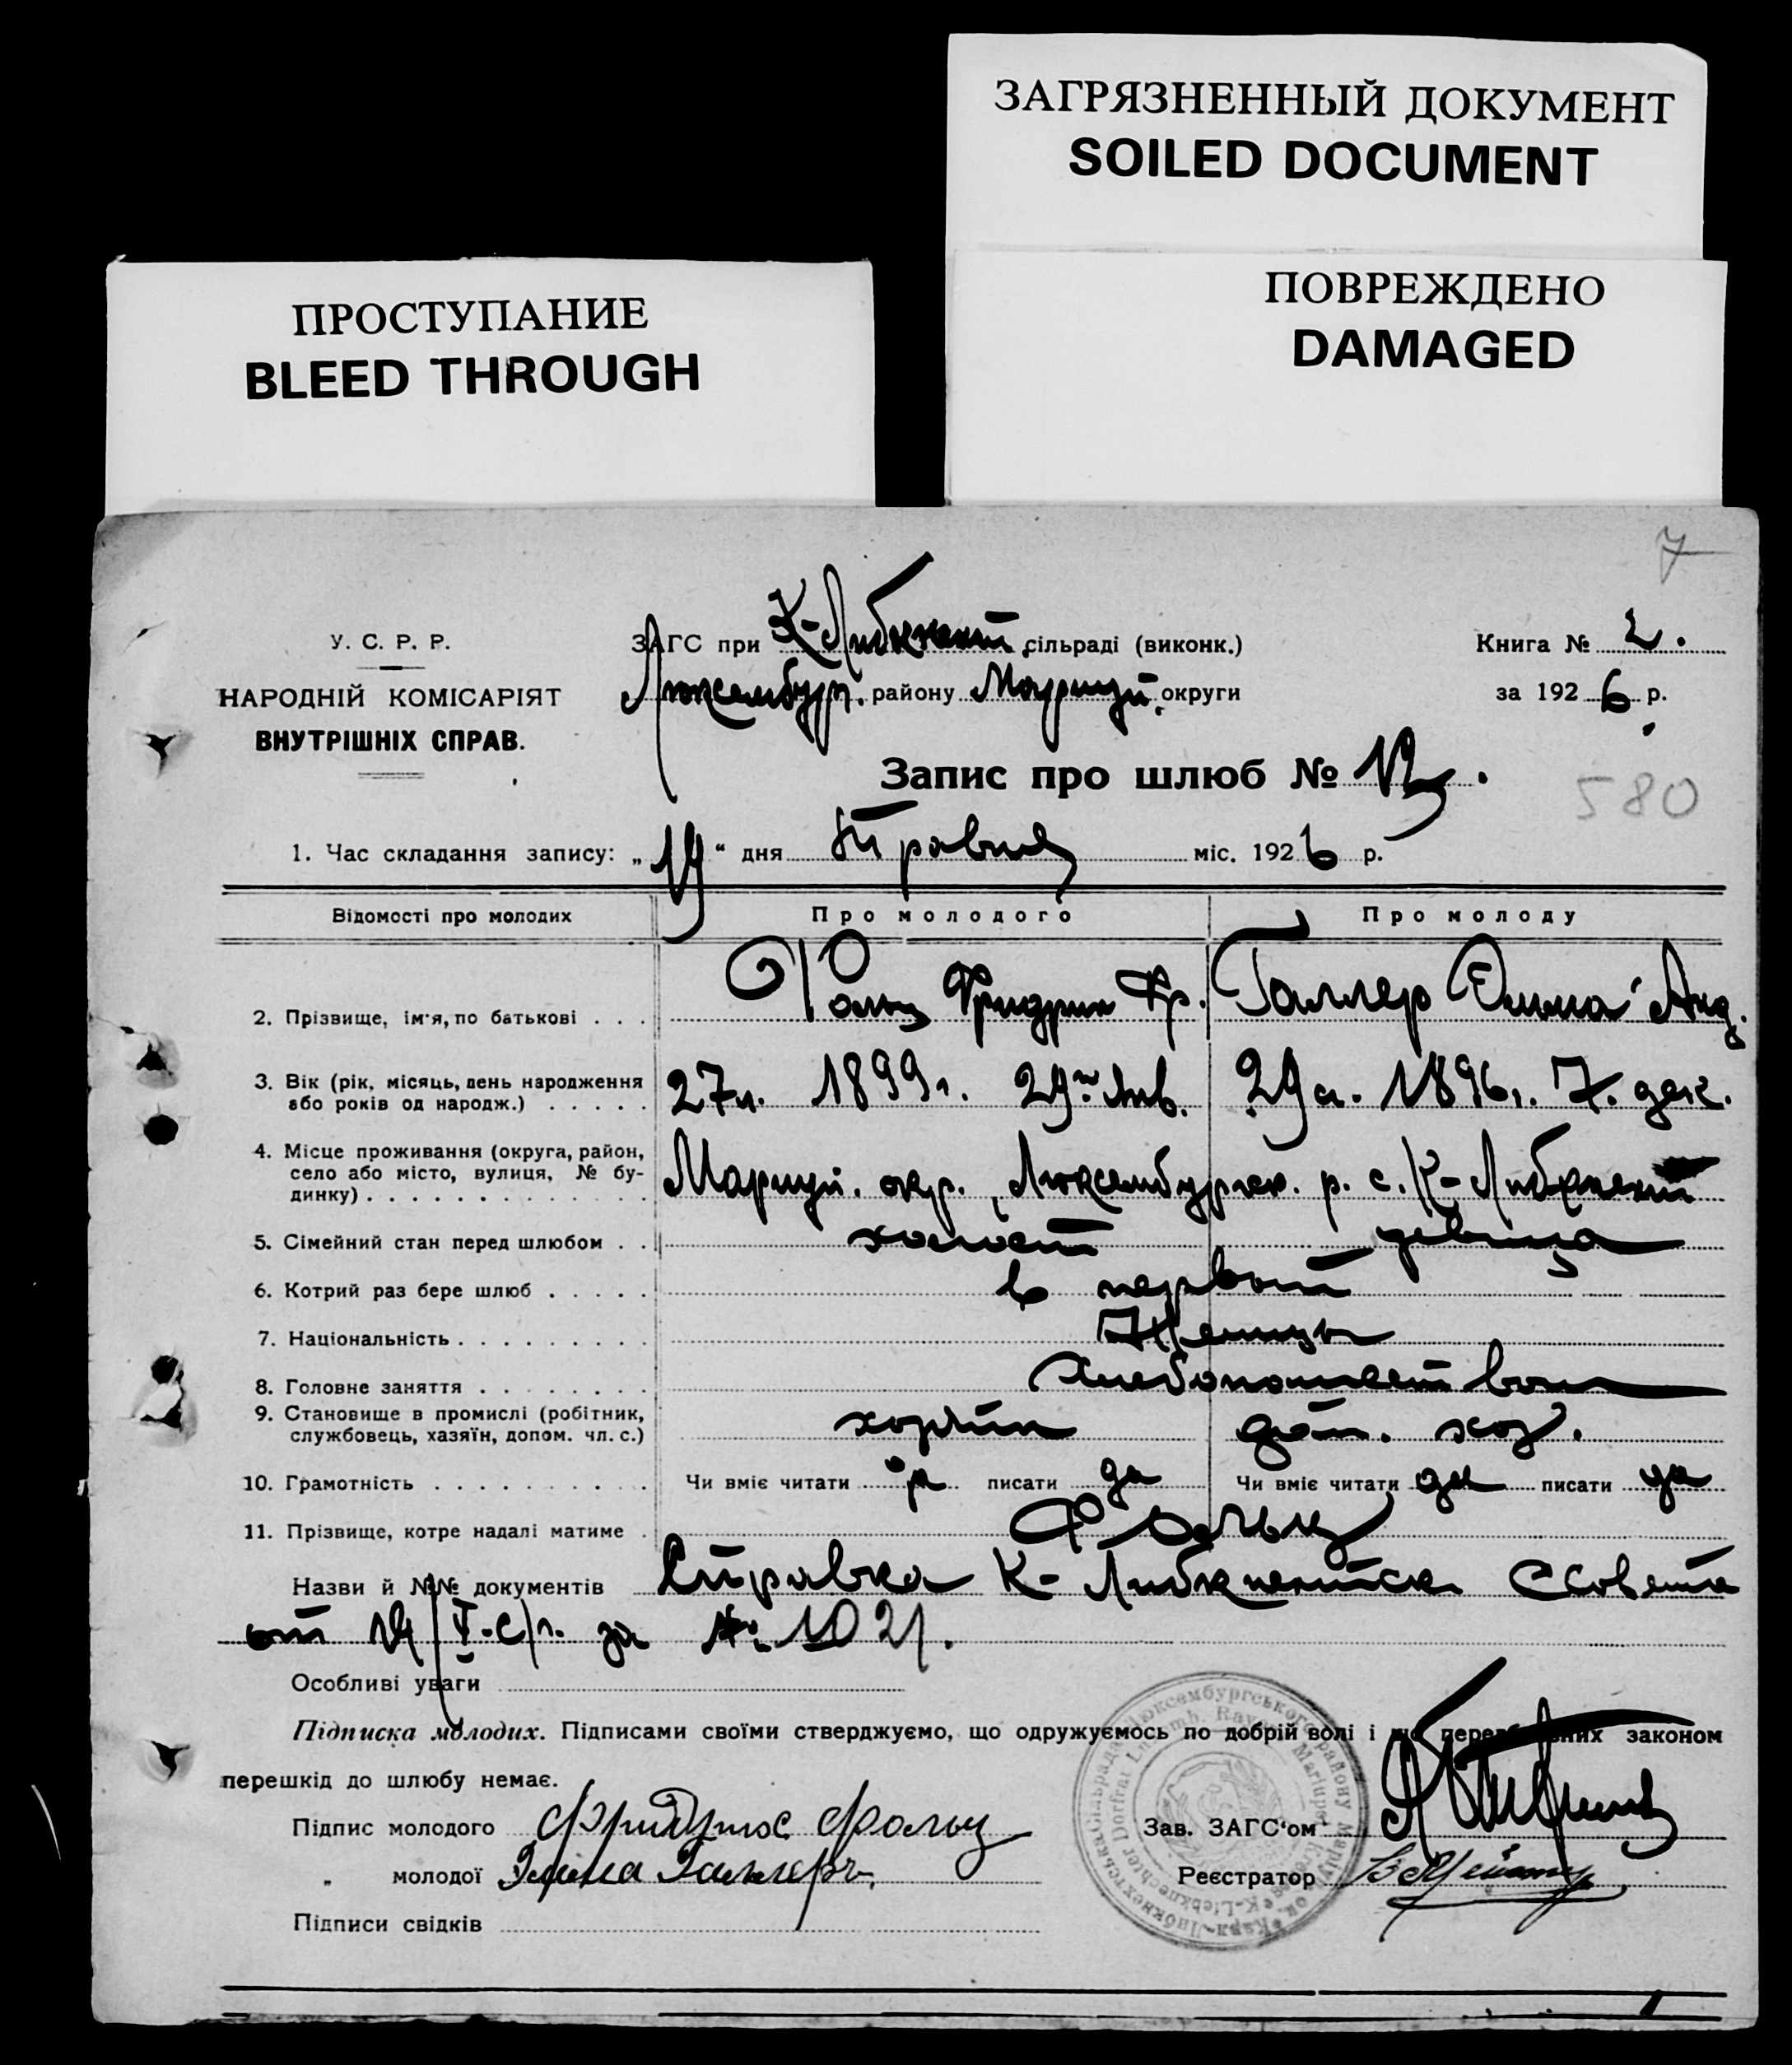 ЗАГРЯЗНЕННЫЙ ДОКУМЕНТ
SOILED DOCUMENT
ПРОСТУПАНИЕ
BLEED THROUGH
ПОВРЕЖДЕНО
DAMAGED
7
У. С. Р. Р.
НАРОДНІЙ КОМІСАРІЯТ
ВНУТРІШНІХ СПРАВ.
ЗАГС при К-Либкнехт сільраді (виконк.)
Люксембург. району Мариуп. округи
Книга № 2.
за 1926 р.
Запис про шлюб №
580
1. Час складання запису: „19“ дня Травня міс. 1926 р.
Відомості про молодих Про молодого Про молоду
2. Прізвище, ім'я, по батькові . . . Фольц Фридрих Фр. Галлер Эмма Анд.
3. Вік (рік, місяць, день народження
або років од народж.) . . . . . 27 л. 1899 г. 29го Янв. 29 л. 1896 г. 7. дек.
4. Місце проживання (округа, район,
село або місто, вулиця, № бу-
динку) . . . . . . . . . . . . . Мариуп. окр. Люксембургск. р. с. К-Либкнехт
5. Сімейний стан перед шлюбом . . холост девица
6. Котрий раз бере шлюб . . . . . в первый
7. Національність . . . . . . . . . Немцы
8. Головне заняття . . . . . . . . Хлебопашеством
9. Становище в промислі (робітник,
службовець, хазяїн, допом. чл. с.) хозяин дом. хоз.
10. Грамотність . . . . . . . . . . Чи вміє читати да писати да Чи вміє читати да писати да
11. Прізвище, котре надалі матиме . Фольц
Назви й №№ документів Справка К-Либкнехтск. ССовета
от 19/V-с/г. за № 1021.
Особливі уваги
Підписка молодих. Підписами своїми стверджуємо, що одружуємось по добрій волі і що передбачених законом
перешкід до шлюбу немає.
Підпис молодого Фридрих Фольц
„ молодої Эмма Галлеръ
Підписи свідків
Зав. ЗАГС'ом
Реєстратор